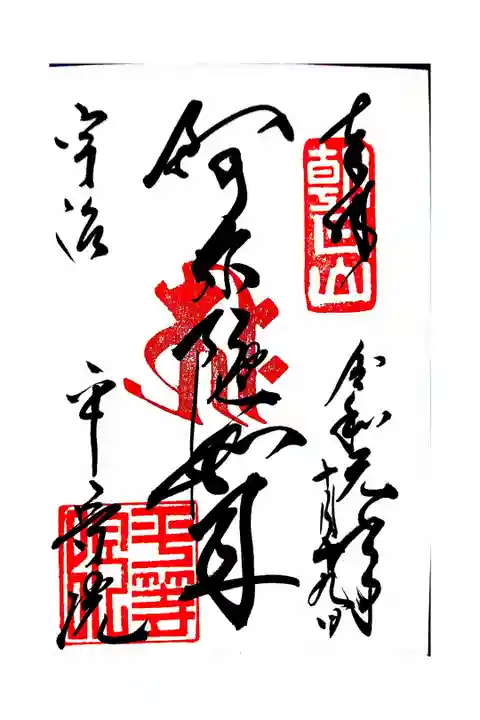 奉拝
朝日山
令和元年
十月十九日
阿弥陀如来
宇治
平等院
平等
院印